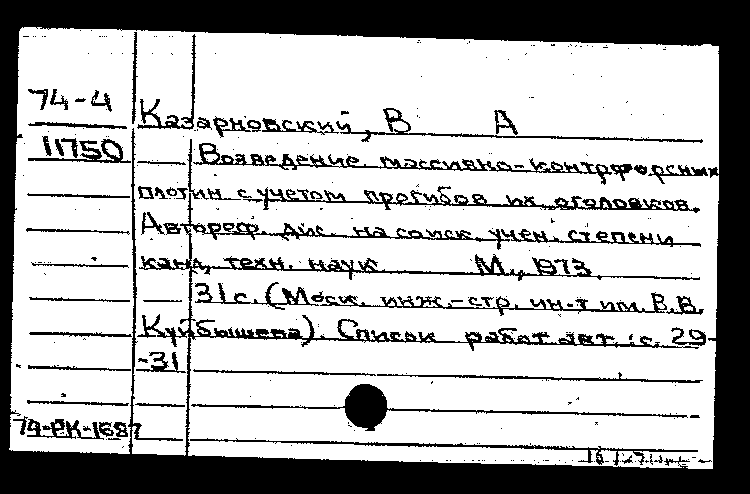 74-4
Казарновский, В А
11750
Возведение массивно-контрфорсных
плотин с учетом прогибов их оголовков.
Автореф. дис. на соиск. учен. степени
канд. техн. наук М., 1973.
31 с. (Моск. инж.-стр. ин-т им. В.В.
Куйбышева). Список работ авт.: с. 29-
-31
74-РК-1687